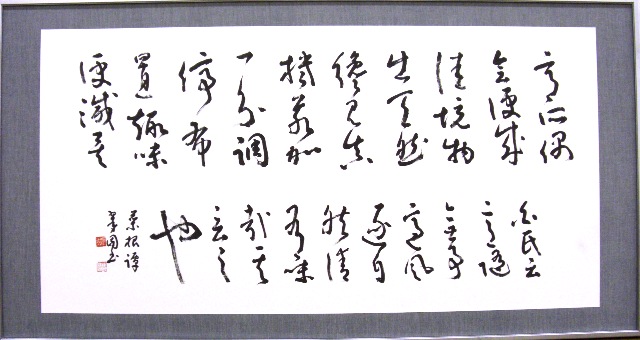 意所偶
会便成
佳境物
出天然
纔見真
機若加
一分調
停布
置趣味
便減矣
白氏云
意随
無事
適風
逐自
然清
有味
哉其
言之
也
菜根譚